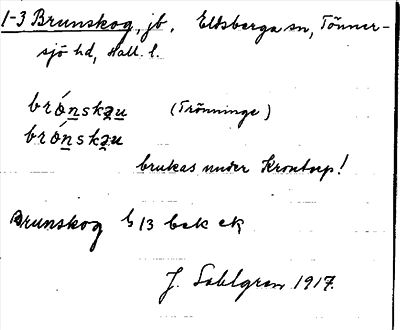 1-3 Brunskog, jb, Eldsberga sn, Tönner-
sjö hd, Hall. l.
brónskau (Trönninge)
brónskau
brukas under Krontorp!
Brunskog b 13 bek ek
J. Sahlgren 1917.